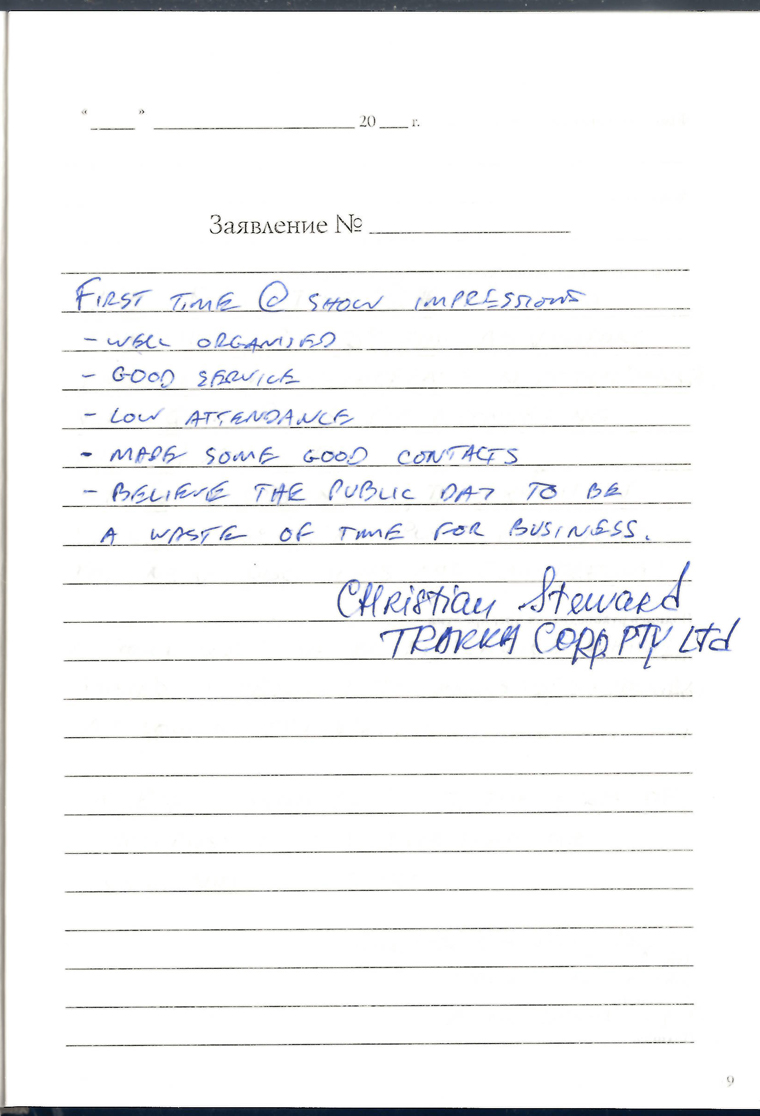 "____" ____________________ 20___ г.
Заявление № ____________________
FIRST TIME @ SHOW IMPRESSIONS
- WELL ORGANISED
- GOOD SERVICE
- LOW ATTENDANCE
- MADE SOME GOOD CONTACTS
- BELIEVE THE PUBLIC DAY TO BE
A WASTE OF TIME FOR BUSINESS.
CHristian Steward
TRAKKA CORP PTY Ltd
9